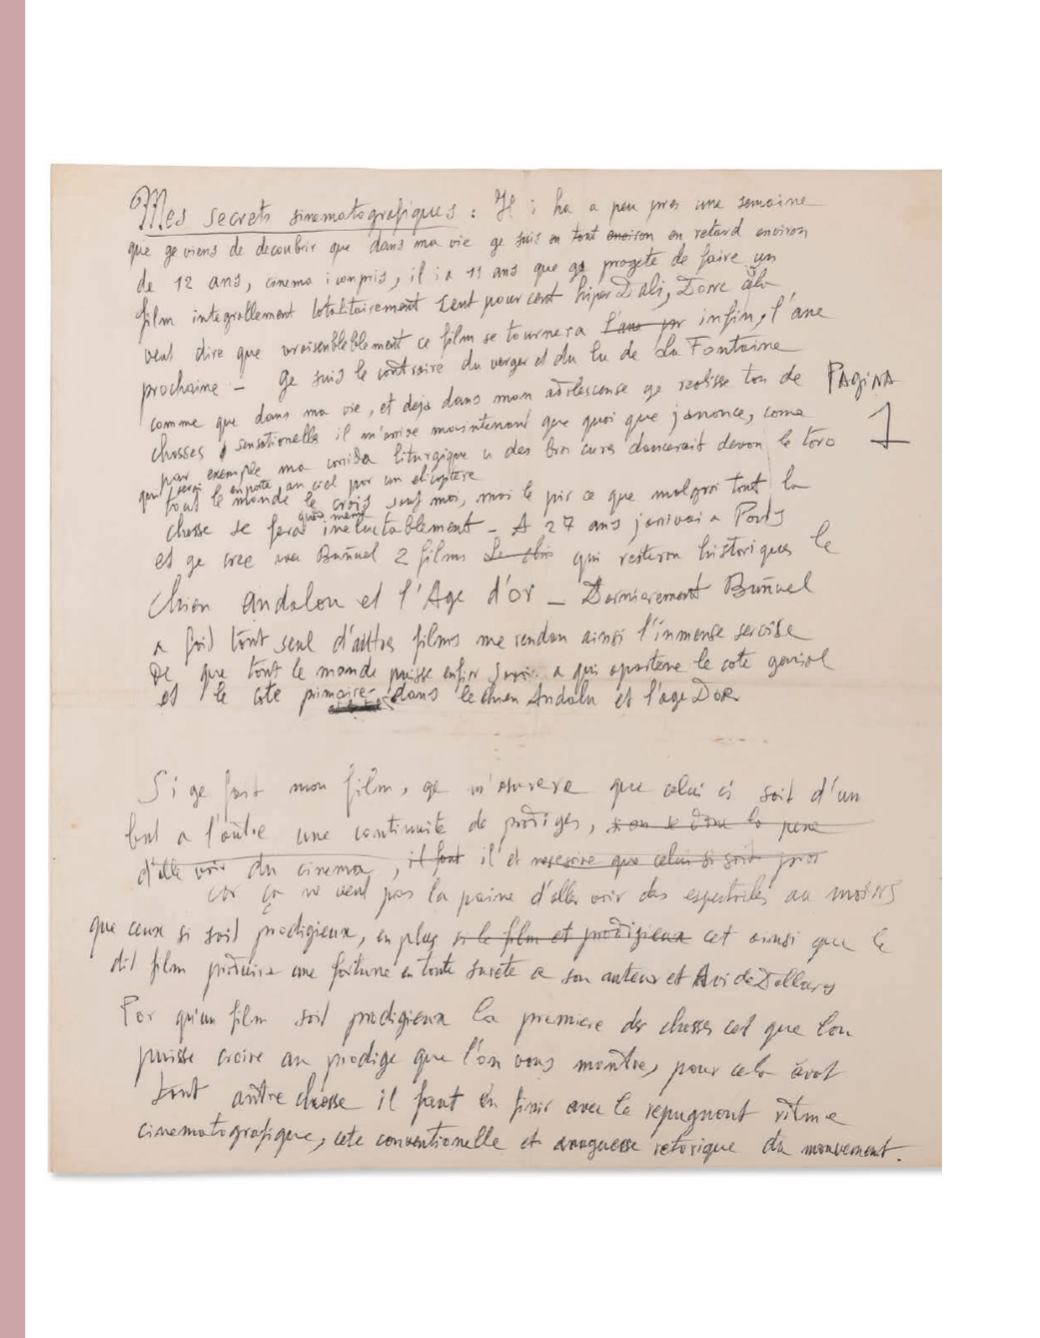 Mes secrets sinematografiques : Il i ha a peu pres une semaine
que ge viens de decoubrir que dans ma vie ge suis en tout environ en retard environ
de 12 ans, cinema i compris, il i a 11 ans que ge progete de faire un
film integrallement totalitairement cent pour cent hiper Dali, Donc cela
veut dire que vraisenbleblement ce film se tournera l'ane pr infin, l'ane
prochaine – ge suis le contraire du verger et du lu de La Fontaine
comme que dans ma vie, et deja dans mon adolescense ge realisse ton de
PAGINA
1
chosses sensationelles il m'arive maintenant que quoi que j'anonce, come
par exemple ma corrida liturgique u des bon cures dancerait devan le toro
qui serai enporte au ciel par un elicoptere
tout le monde le crois sauf moi, mai le pir ce que malgroi tout la
chosse se fera quasiment ineluctablement – A 27 ans j'arivai a Paris
et ge cree avec Buñuel 2 films Le chie qui resteron historiques le
Chien andalou et l'Age d'or – Dernierement Buñuel
a fait tout seul d'autres films me rendan ainsi l'inmense servise
De que tout le monde puisse enfin savoir a qui apartene le cote genial
et le cote primaire dans le chien Andalu et l'age D'OR
Si ge fait mon film, ge m'asurere que celui ci soit d'un
but a l'autre une continuite de prodiges, si on se done la pene
d'alle voir du cinema, il faut il et nesesire que celui si soit pror
car ça ne veut pas la paine d'alle voir des espectacles au moins
que ceux si soit prodigieux, en plus si le film et prodigieux cet ainsi que le
dit film produira une fortune en toute surete a son auteur et Avi de Dollars
Por qu'un film soit prodigieux la premiere des chosses cet que l'on
puisse croire au prodige que l'on vous montre, pour cela avat
tout autre chosse il faut en finir avec le repugnont ritme
cinematografique, cete conventionelle et aroguesse retorique du mouvement.